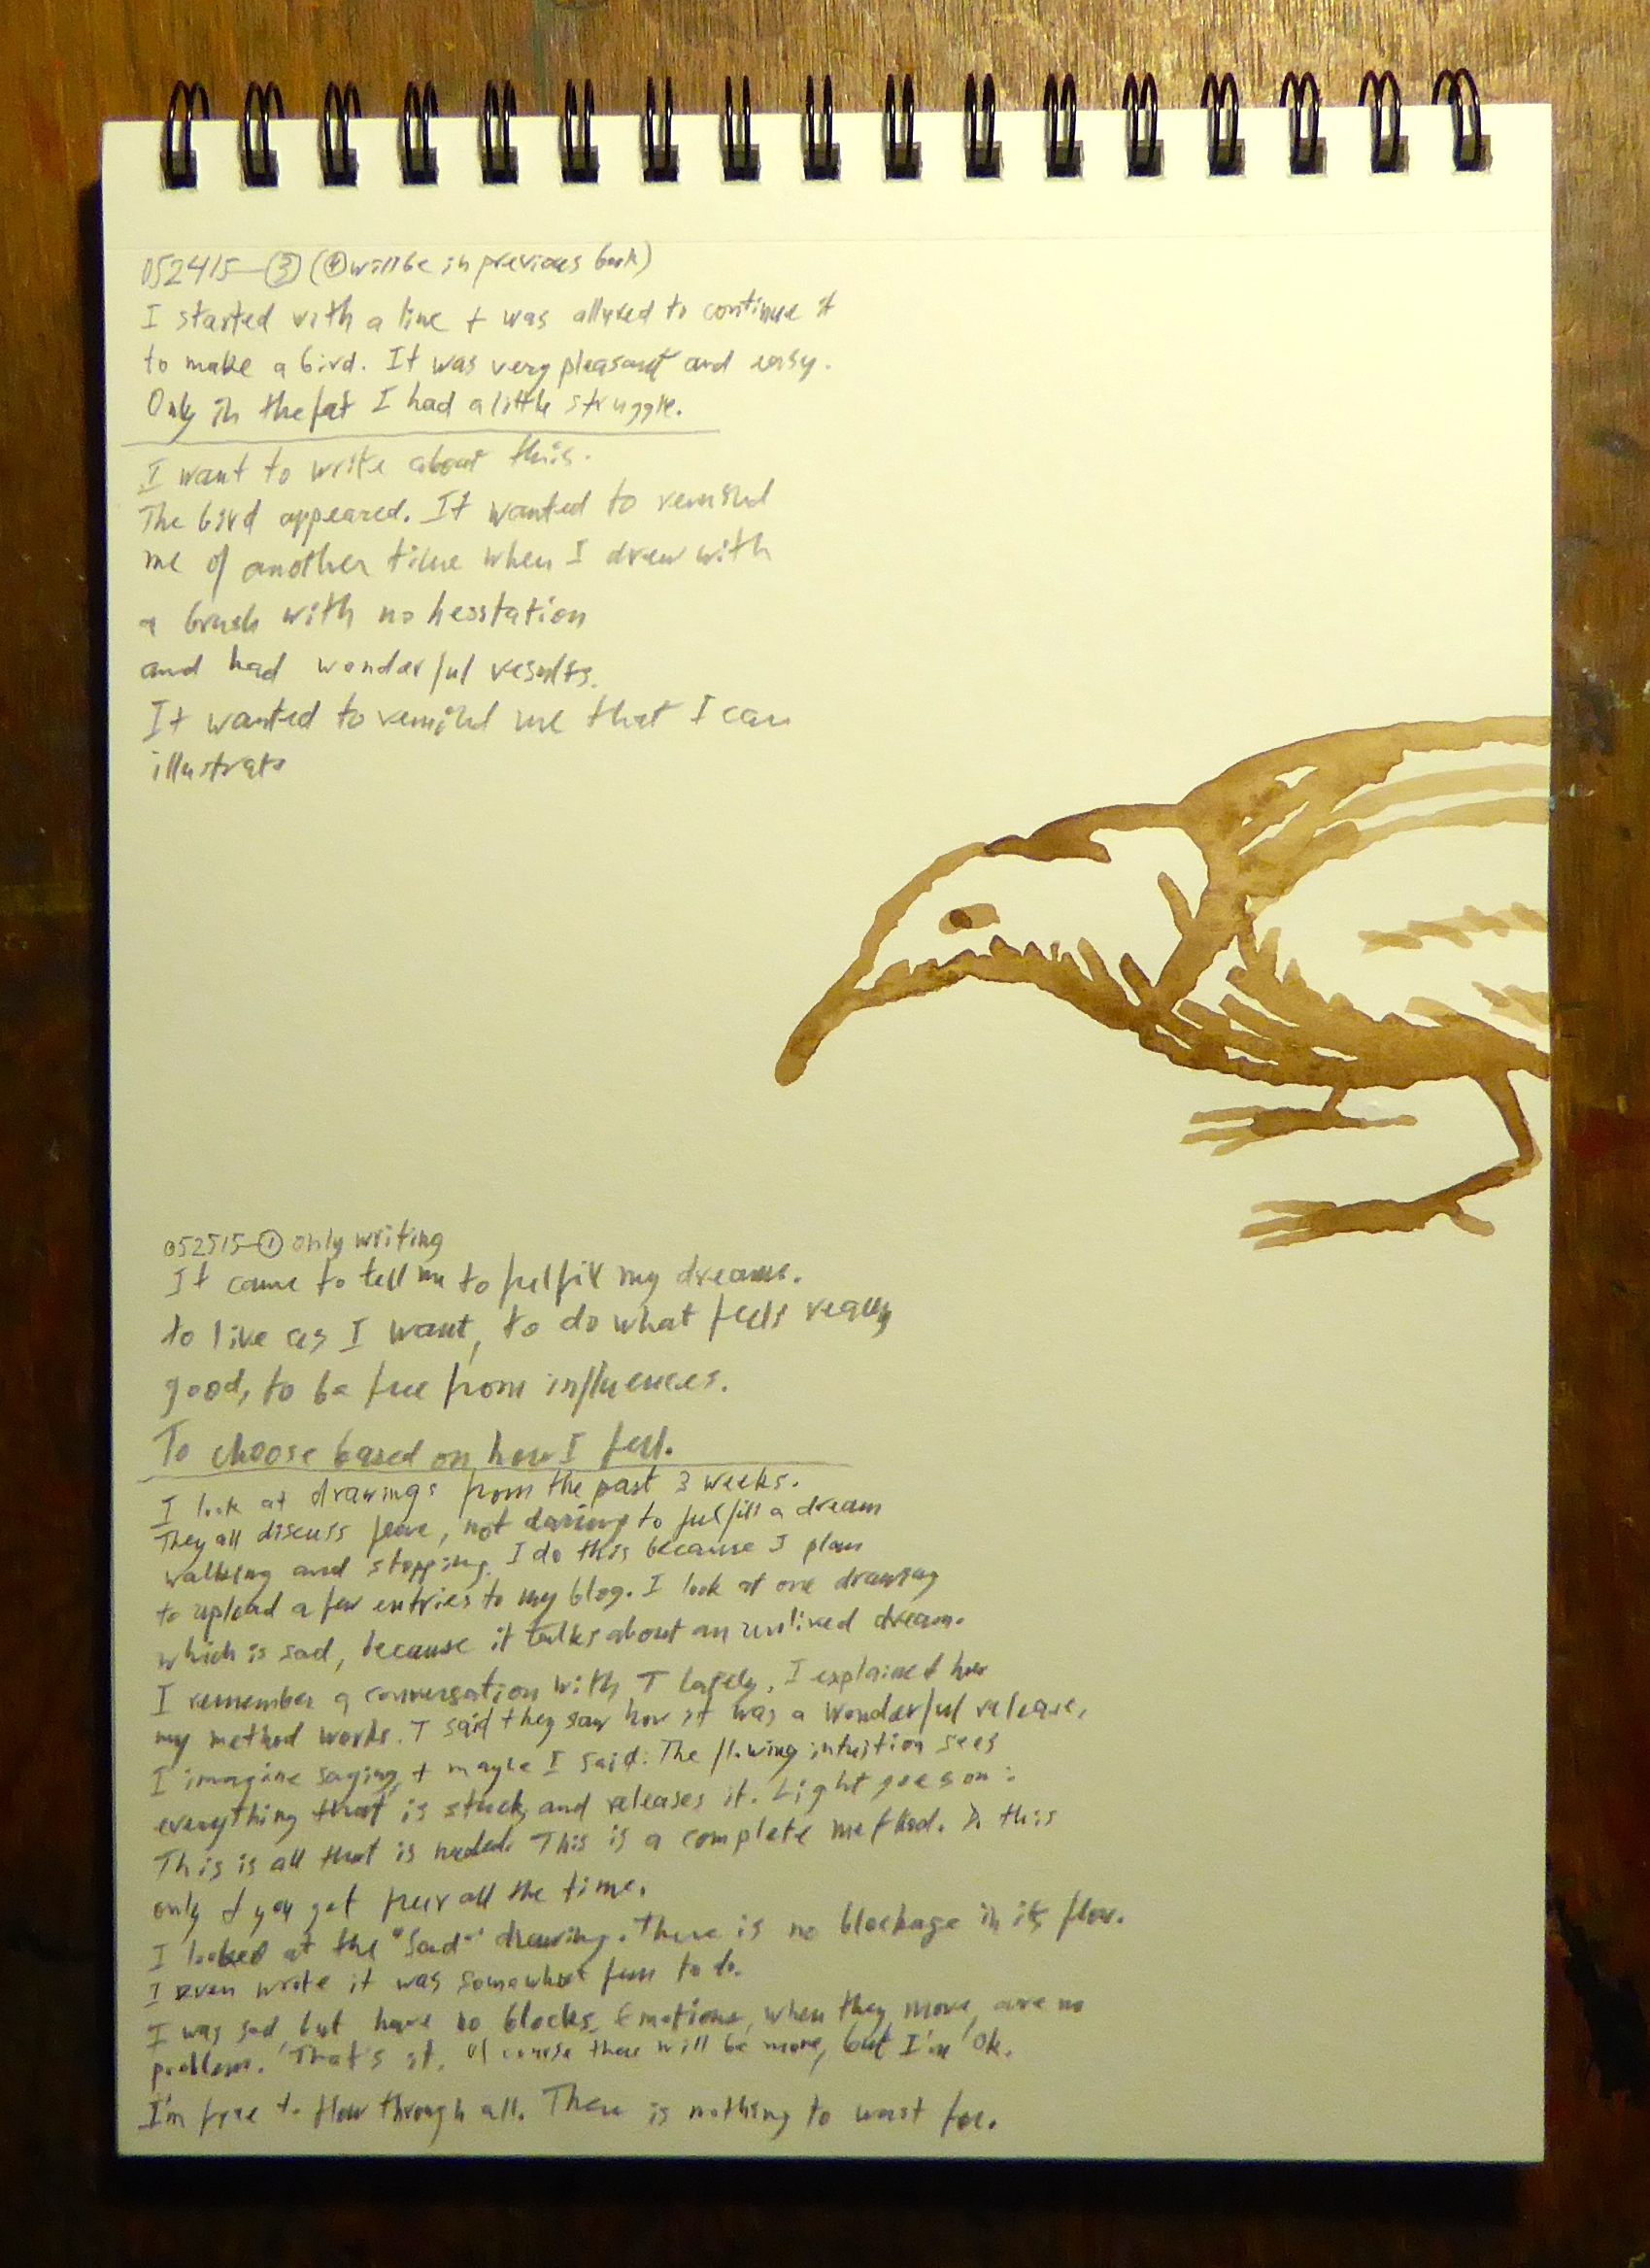 052415-③ (④ will be in previous book)
I started with a line + was allured to continue it
to make a bird. It was very pleasant and easy.
Only in the I had a little struggle.
I want to write about this.
The bird appeared. It wanted to remind
me of another time when I drew with
a brush with no hesstation
and had wonderful results.
It wanted to remind me that I can
illustrate
052515-① only writing
It came to tell me to fulfill my dreams.
to live as I want, to do what feels really
good, to be free from influences.
To choose based on how I feel.
I look at drawings from the past 3 weeks.
They all discuss fear, not daring to fulfill a dream
walking and stopping. I do this because I plan
to upload a few entries to my blog. I look at one drawing
which is sad, because it talks about an unlived dream.
I remember a conversation with T lately. I explained how
my method works. T said they saw how it was a wonderful release.
I imagine saying, + maybe I said: The flowing intuition sees
everything that is stuck, and releases it. Light goes on:
This is all that is needed. This is a complete method. Do this
only & you get freer all the time.
I looked at the "sad" drawing. There is no blockage in its flow.
I even wrote it was somewhat fun to do.
I was sad, but have no blocks. Emotions, when they move, are no
problem. That's it. Of course there will be more, but I'm OK.
I'm free to flow through all. There is nothing to wait for.